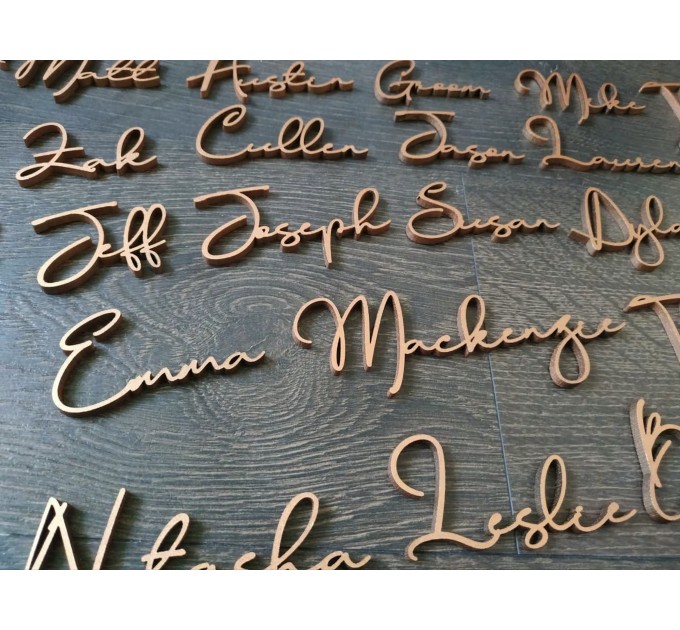 Matt Austin Green Mike
Zak Cullen Jason Lauren
Jeff Joseph Susan Dyla
Emma Mackenzie
Natasha Leslie